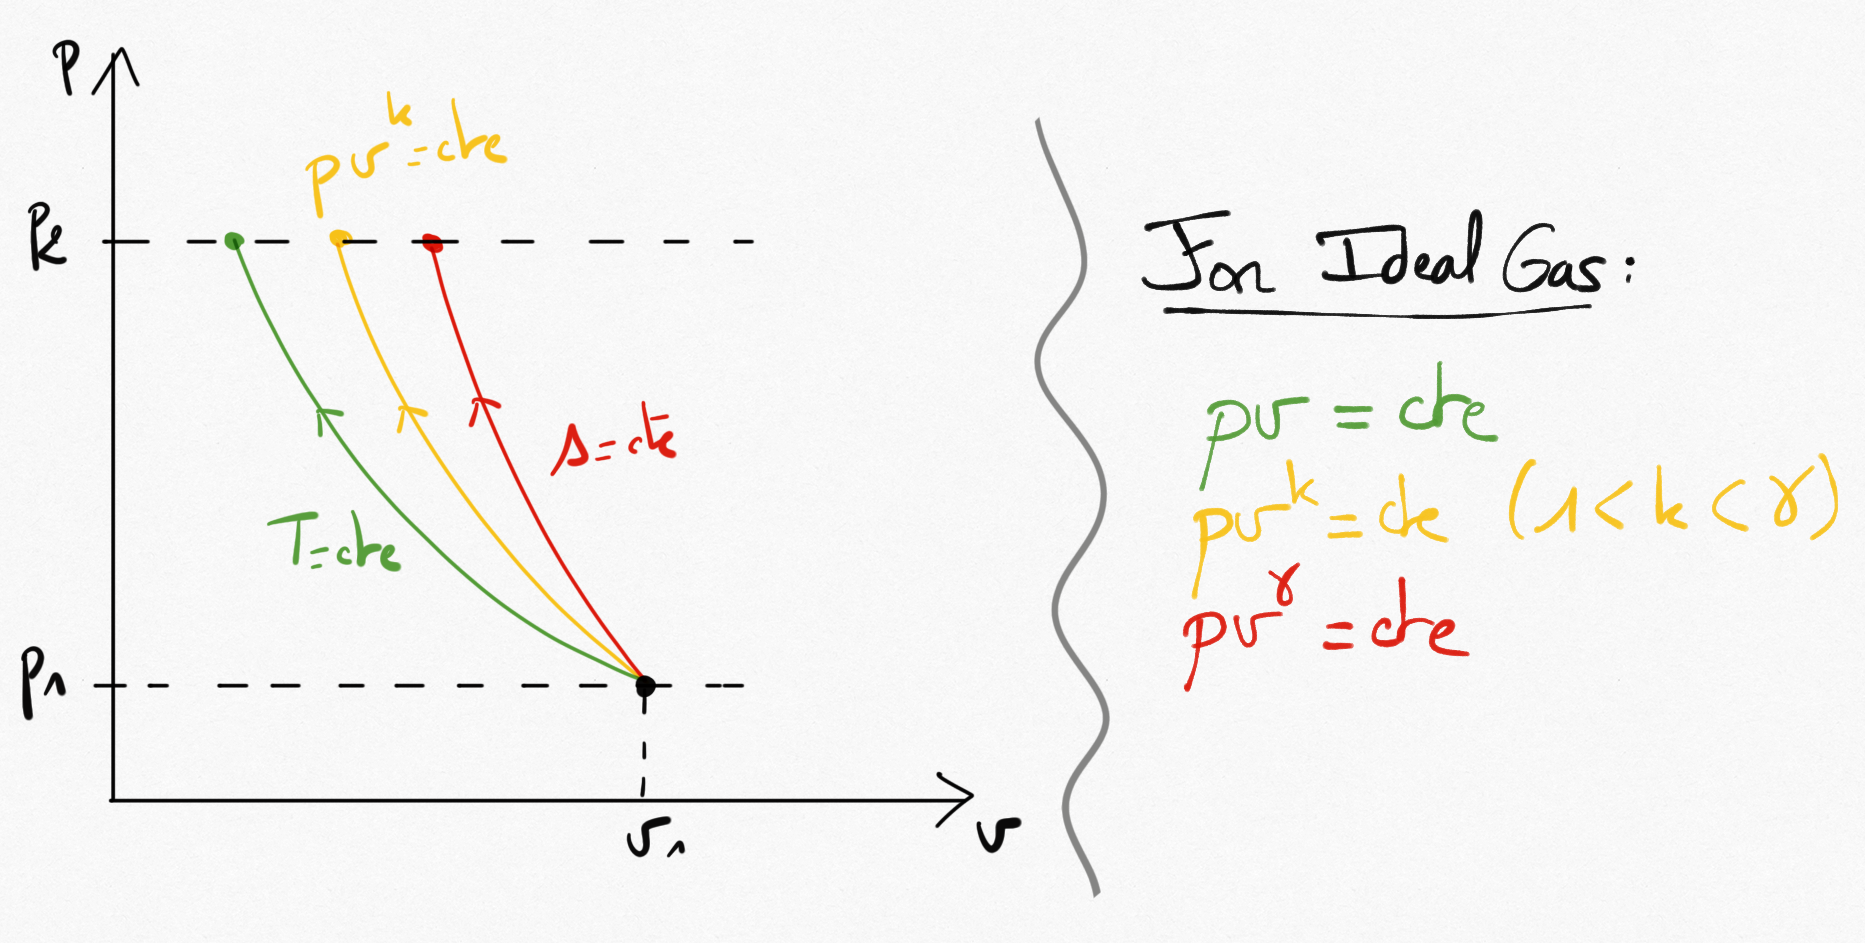 p
pv^k = cte
Pk
s = cte
T = cte
P1
v1
v
For Ideal Gas:
pv = cte
pv^k = cte (1 < k < γ)
pv^γ = cte